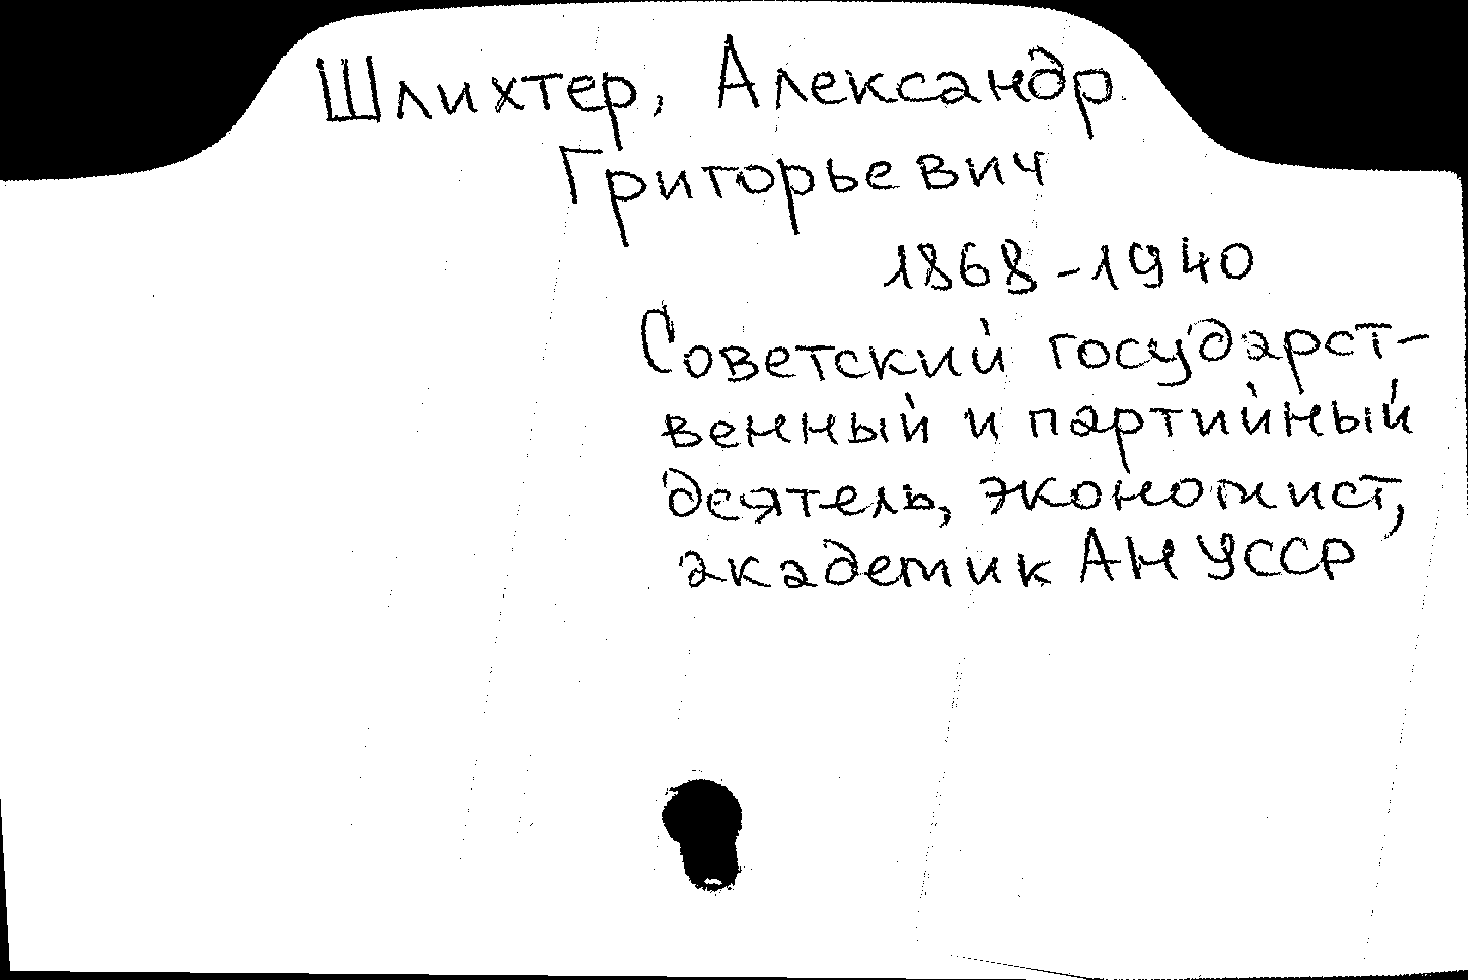 Шлихтер, Александр
Григорьевич
1868-1940
Советский государст-
венный и партийный
деятель, экономист,
академик АН УССР